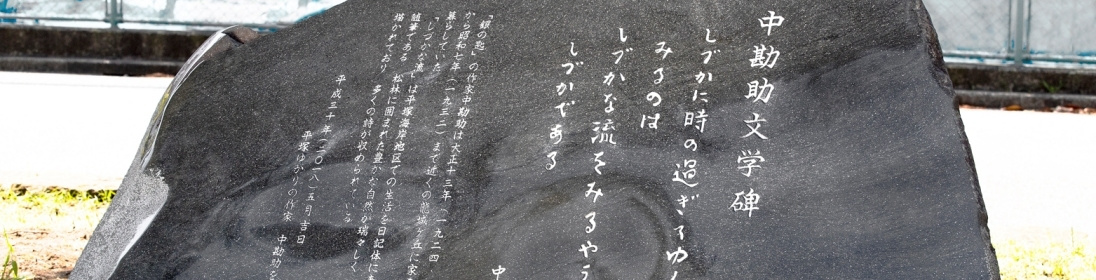 中勘助文学碑
しづかに時の過ぎてゆく
みるのは
しづかな流をみるやう
しづかである
中
『銀の匙』の作家中勘助は大正十三年（一九二四
から昭和七年（一九三二）まで近くの龍城ヶ丘に家を
暮らしていた
『しづかな流』は平塚海岸地区での生活を日記体に
随筆である 松林に囲まれた豊かな自然が瑞々しく
描かれており 多くの詩が収められている
平成三十年（二〇一八）五月吉日
平塚ゆかりの作家 中勘助を